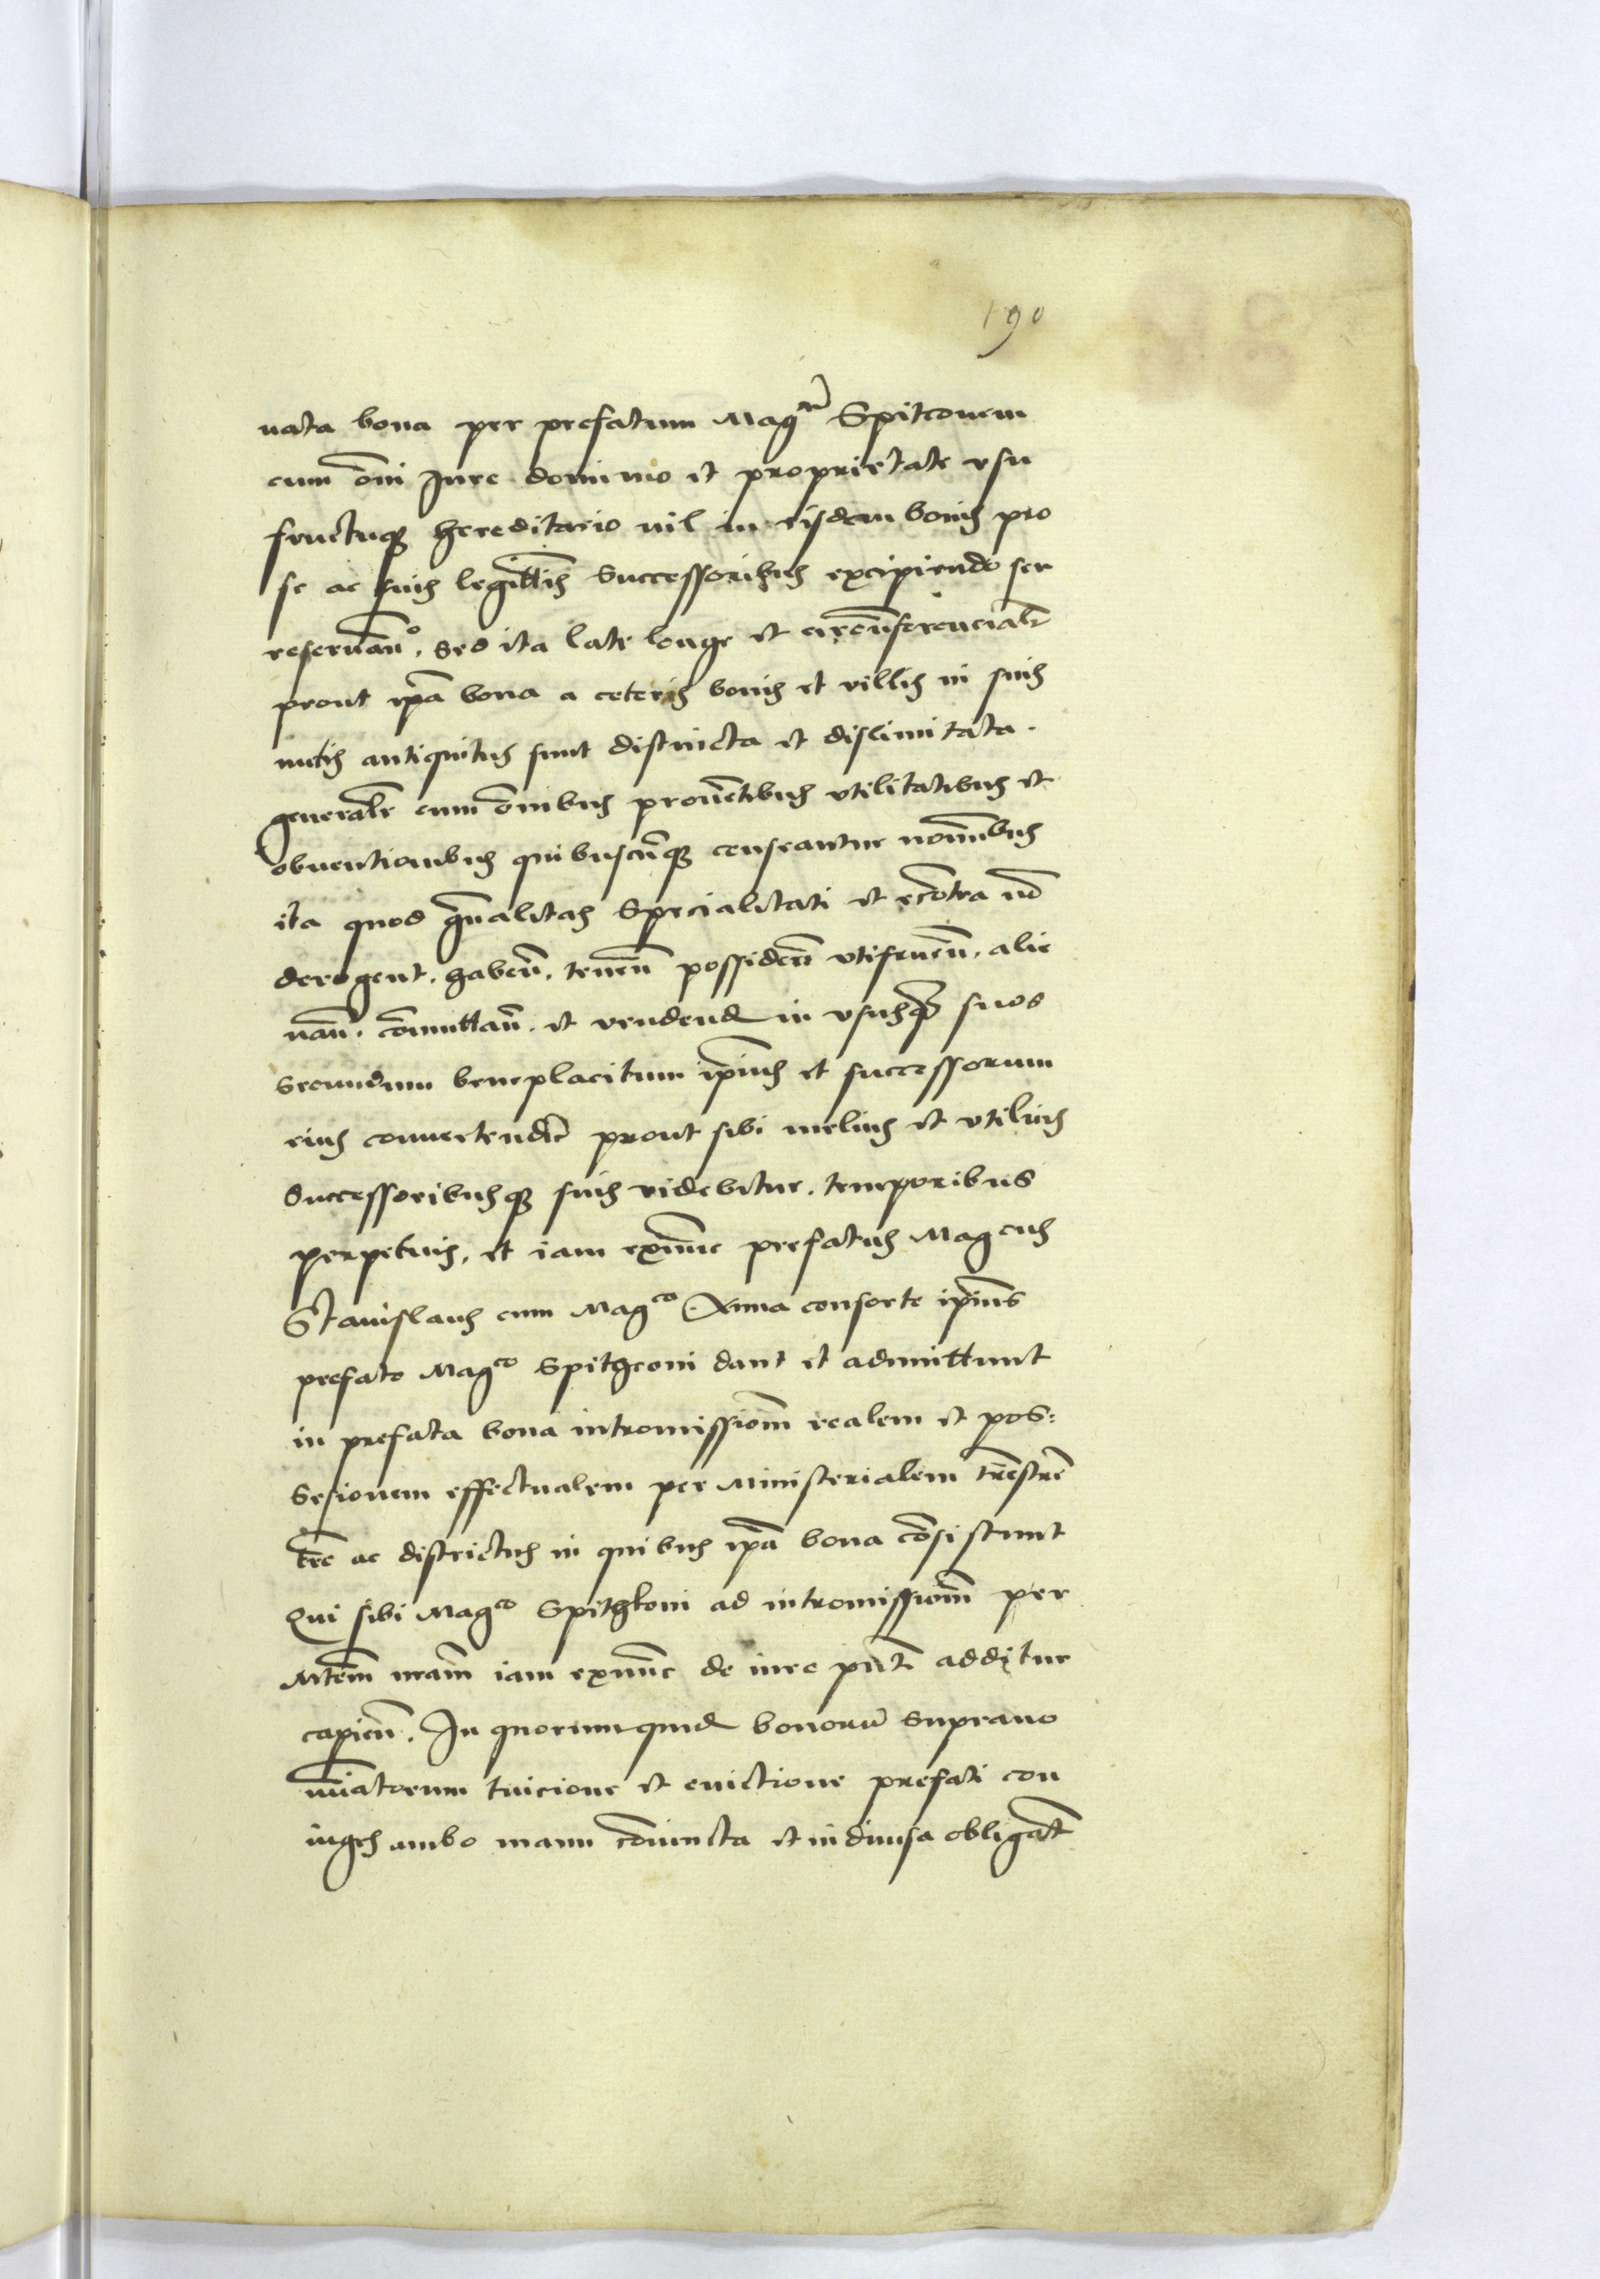 190
nata bona per prefatum Mag^cu Spitconem
cum o͞mi Jure dominio et proprietate vsu
fructuq₃ hereditario nil in eisdem bonis pro
se ac suis legitti͞s Successoribus excipiendo seu
reseruan͞^o. Sed ita late longe et circu͞ferencialr͞
prout ip͞a bona a ceteris bonis et villis in suis
metis antiquitus sunt distincta et dislimitata.
generalr͞ cum o͞mibus prouentibus vtilitatibus et
obuentionibus quibuscu͞q₃ censeantur no͞mibus
ita quod g͞nalitas Specialitati et eco͞tra no͞
derogent. haben͞. tenen͞ possiden͞ vtifruen͞. alie
nan͞. co͞muttan͞. et vendend in vsusq₃ suos
Secundum beneplacitum ip͞ius et successorum
eius conuertend͞ prout sibi melius et vtilius
Successoribusq₃ suis videbitur. temporibus
perpetuis. et iam exnu͞c prefatus Magcus
Stanislaus cum Mag^ca Anna consorte ip͞ius
prefato Mag^co Spitgconi dant et admittunt
in prefata bona intromissio͞m realem et pos=
Sesionem effectualem per Ministerialem tr͞estre͞
tr͞e ac districtus in quibus ip͞a bona co͞sistunt
Qui sibi Mag^co Spitgkoni ad intromissio͞m per
Mte͞m nr͞am iam exnu͞c de iure pn͞t͞ additur
capien͞. In quorumquid bonoru͞ Suprano
mi͞atorum tuicione et euictione prefati con
iuges ambo manu co͞iuncta et indiuisa obligan͞t